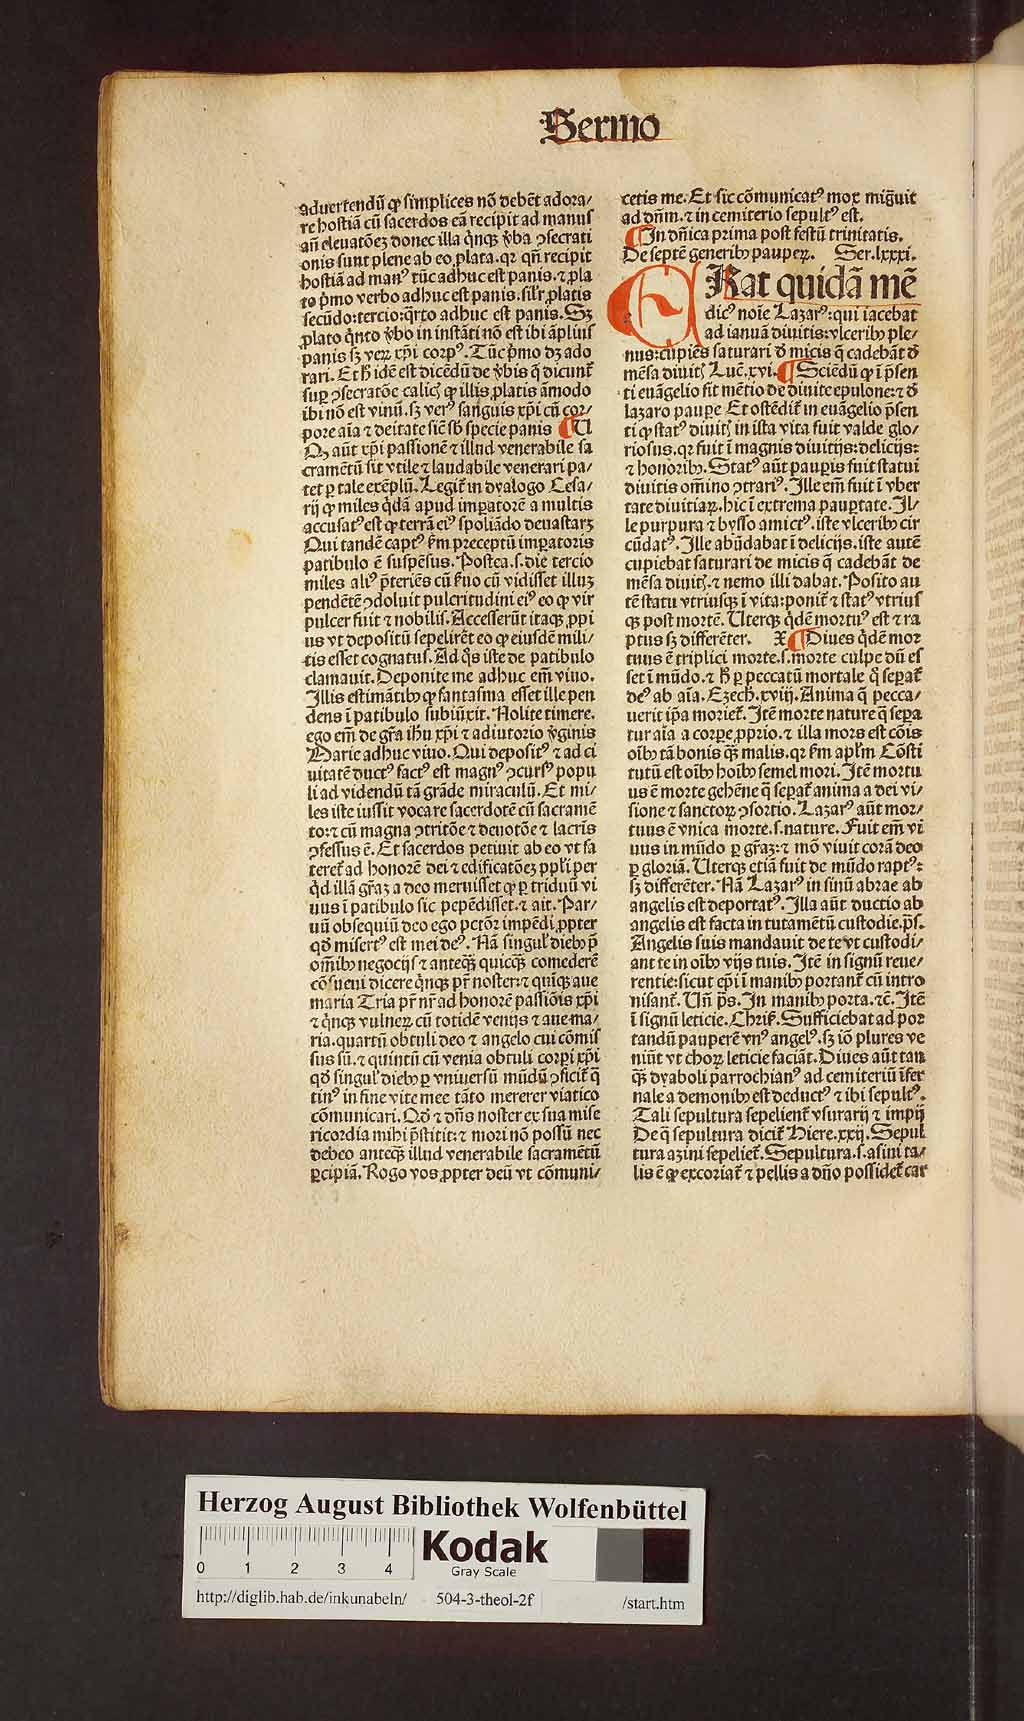 Sermo
aduertendū ꝙ simplices nō debēt adora/
re hostiā cū sacerdos eā recipit ad manus
añ eleuatōeꝫ donec illa q̇nqꝫ v̇ba ↄsecrati
onis sunt plene ab eo ꝓlata. qꝛ qñ recipit
hostiā ad manꝰ tūc adhuc est panis. ⁊ ꝓla
to p̄mo verbo adhuc est panis. silʳ ꝓlatis
secūdo: tercio: q̇rto adhuc est panis. Sꝫ
ꝓlato q̇nto v̇bo in instāti nō est ibi āplius
panis sꝫ veꝝ xp̄i corpꝰ. Tūc p̄mo dꝫ ado
rari. Et hᵒ idē est dicēdū de v̇bis q̄ dicunt᷑
suꝑ ↄsecratōe calicꝭ ꝙ illis ꝓlatis āmodo
ibi nō est vinū. sꝫ verꝰ sanguis xp̄i cū cor/
pore aīa ⁊ deitate siē sb̄ specie panis ¶ U
Qꝫ aūt xp̄i passionē ⁊ illud venerabile sa
cramētū sit vtile ⁊ laudabile venerari pa/
tet ꝑ tale exēplū. Legit᷑ in dyalogo Cesa/
rij ꝙ miles q̇dā apud imꝑatorē a multis
accusatꝰ est ꝙ terrā eiꝰ spoliādo deuastarꝫ
Qui tandē captꝰ ẜm preceptū imꝑatoris
patibulo ē suspēsus. Postea .s. die tercio
miles aliꝰ p̄teriēs cū ẜuo cū vidisset illuꝫ
pendētē ↄdoluit pulcritudini eiꝰ eo ꝙ vir
pulcer fuit ⁊ nobilis. Accesserūt itaqꝫ ꝓpi
us vt depositū sepelirēt eo ꝙ eiusdē mili/
tis esset cognatus. Ad q̇s iste de patibulo
clamauit. Deponite me adhuc em̄ viuo.
Illis estimātibꝰ ꝙ fantasma esset ille pen
dens ī patibulo subiūxit. Nolite timere.
ego em̄ de gr̄a ihū xp̄i ⁊ adiutorio v̇ginis
Marie adhuc viuo. Qui depositꝰ ⁊ ad ci
uitatē ductꝰ factꝰ est magnꝰ ↄcursꝰ popu
li ad videndū tā grāde miraculū. Et mi/
les iste iussit vocare sacerdotē cū sacramē
to: ⁊ cū magna ↄtritōe ⁊ deuotōe ⁊ lacris
ↄfessus ē. Et sacerdos petiuit ab eo vt fa
teret᷑ ad honorē dei ⁊ edificatōeꝫ ppl̄i per
q̇d illā gr̄aꝫ a deo meruisset ꝙ ꝑ triduū vi
uus ī patibulo sic pepēdisset. ⁊ ait. Par/
uū obsequiū deo ego pctōr impēdi ꝓpter
qd̄ misertꝰ est mei deꝰ. Nā singulꝭ diebꝰ p̄
om̄ibꝰ negocijs ⁊ anteqꝫ quicqꝫ comederē
cōsueui dicere q̇nqꝫ pr̄ noster: ⁊ quiqꝫ aue
maria Tria pr̄ nr̄ ad honorē passiōis xp̄i
⁊ q̇nqꝫ vulneꝝ cū totidē venijs ⁊ aue ma/
ria. quartū obtuli deo ⁊ angelo cui cōmis
sus sū. ⁊ quintū cū venia obtuli corpi xp̄i
qd̄ singulꝭ diebꝰ ꝑ vniuersū mūdū ↄficit᷑ q̄
tinꝰ in fine vite mee tāto mererer viatico
cōmunicari. Qd̄ ⁊ dn̄s noster ex sua mise
ricordia mihi p̄stitit: ⁊ mori nō possū nec
debeo anteqꝫ illud venerabile sacramētū
ꝑcipiā. Rogo vos ꝓpter deū vt cōmuni/
cetis me. Et sic cōmunicatꝰ mox migͣuit
ad dn̄m. ⁊ in cemiterio sepultꝰ est.
¶ In dn̄ica prima post festū trinitatis.
De septē generibꝰ pauperꝝ. Ser. lxxxi.
ERat quidā mē
dicꝰ noīe Lazarꝰ: qui iacebat
ad ianuā diuitis: vlceribꝰ ple/
nus: cupiēs saturari d̄ micis q̄ cadebāt d̄
mēsa diuitꝭ Luc̄. xvi. ¶ Sciēdū ꝙ ī p̄sen
ti euāgelio fit mētio de diuite epulone: ⁊ d̄
lazaro paupe Et ostēdit᷑ in euāgelio p̄sen
ti ꝙ statꝰ diuitꝭ in ista vita fuit valde glo/
riosus. qꝛ fuit ī magnis diuitijs: delicijs:
⁊ honoribꝰ. Statꝰ aūt pauꝑis fuit statui
diuitis om̄ino ↄtrariꝰ. Ille em̄ fuit ī vber
tate diuitiaꝝ. hic ī extrema pauꝑtate. Il/
le purpura ⁊ bysso amictꝰ. iste vlceribꝰ cir
cūdatꝰ. Ille abūdabat ī delicijs. iste autē
cupiebat saturari de micis q̄ cadebāt de
mēsa diuitꝭ. ⁊ nemo illi dabat. Posito au
tē statu vtriusqꝫ ī vita: ponit᷑ ⁊ statꝰ vtrius
qꝫ post mortē. Uterqꝫ q̇dē mortuꝰ est ⁊ ra
ptus sꝫ differēter. X ¶ Diues q̇dē mor
tuus ē triplici morte .s. morte culpe dū es
set ī mūdo. ⁊ hᵒ ꝑ peccatū mortale q̊ separat᷑
deꝰ ab aīa. Ezech. xviij. Anima q̄ pecca/
uerit ip̄a moriet᷑. Itē morte nature q̄ sepa
tur aīa a corꝑe ꝓprio. ⁊ illa mors est cōis
oībꝰ tā bonis qꝫ malis. qꝛ ẜm apl̄m Cōsti
tutū est oībꝰ hoībꝰ semel mori. Itē mortu
us ē morte gehēne q̄ separat᷑ anima a dei vi/
sione ⁊ sanctoꝝ ↄsortio. Lazarꝰ aūt mor/
tuus ē vnica morte .s. nature. Fuit em̄ vi
uus in mūdo ꝑ gr̄aꝫ: ⁊ mō viuit corā deo
ꝑ gloriā. Uterqꝫ etiā fuit de mūdo raptꝰ:
sꝫ differēter. Nā Lazarꝰ in sinū abrae ab
angelis est deportatꝰ. Illa aūt ductio ab
angelis est facta in tutamētū custodie. p̄s.
Angelis suis mandauit de te vt custodi/
ant te in oībꝰ vijs tuis. Itē in signū reue/
rentie: sicut ep̄i ī manibꝰ portant᷑ cū intro
nisant᷑. Un̄ p̄s. In manibꝰ porta. ⁊c̄. Itē
ī signū leticie. Chriſ. Sufficiebat ad por
tandū pauperē vnꝰ angelꝰ. sꝫ iō plures ve
niūt vt choꝝ leticie faciāt. Diues aūt tan
qꝫ dyaboli parrochianꝰ ad cemiteriū īfer
nale a demonibꝰ est deductꝰ ⁊ ibi sepultꝰ.
Tali sepultura sepelient᷑ vsurarij ⁊ impij
De q̄ sepultura dicit᷑ Hiere. xxij. Sepul
tura azini sepeliet᷑. Sepultura .s. asini ta/
lis ē ꝙ excoriat᷑ ⁊ pellis a dn̄o possidet᷑ car
Herzog August Bibliothek Wolfenbüttel
0 1 2 3 4
Kodak
Gray Scale
http://diglib.hab.de/inkunabeln/ 504-3-theol-2f /start.htm